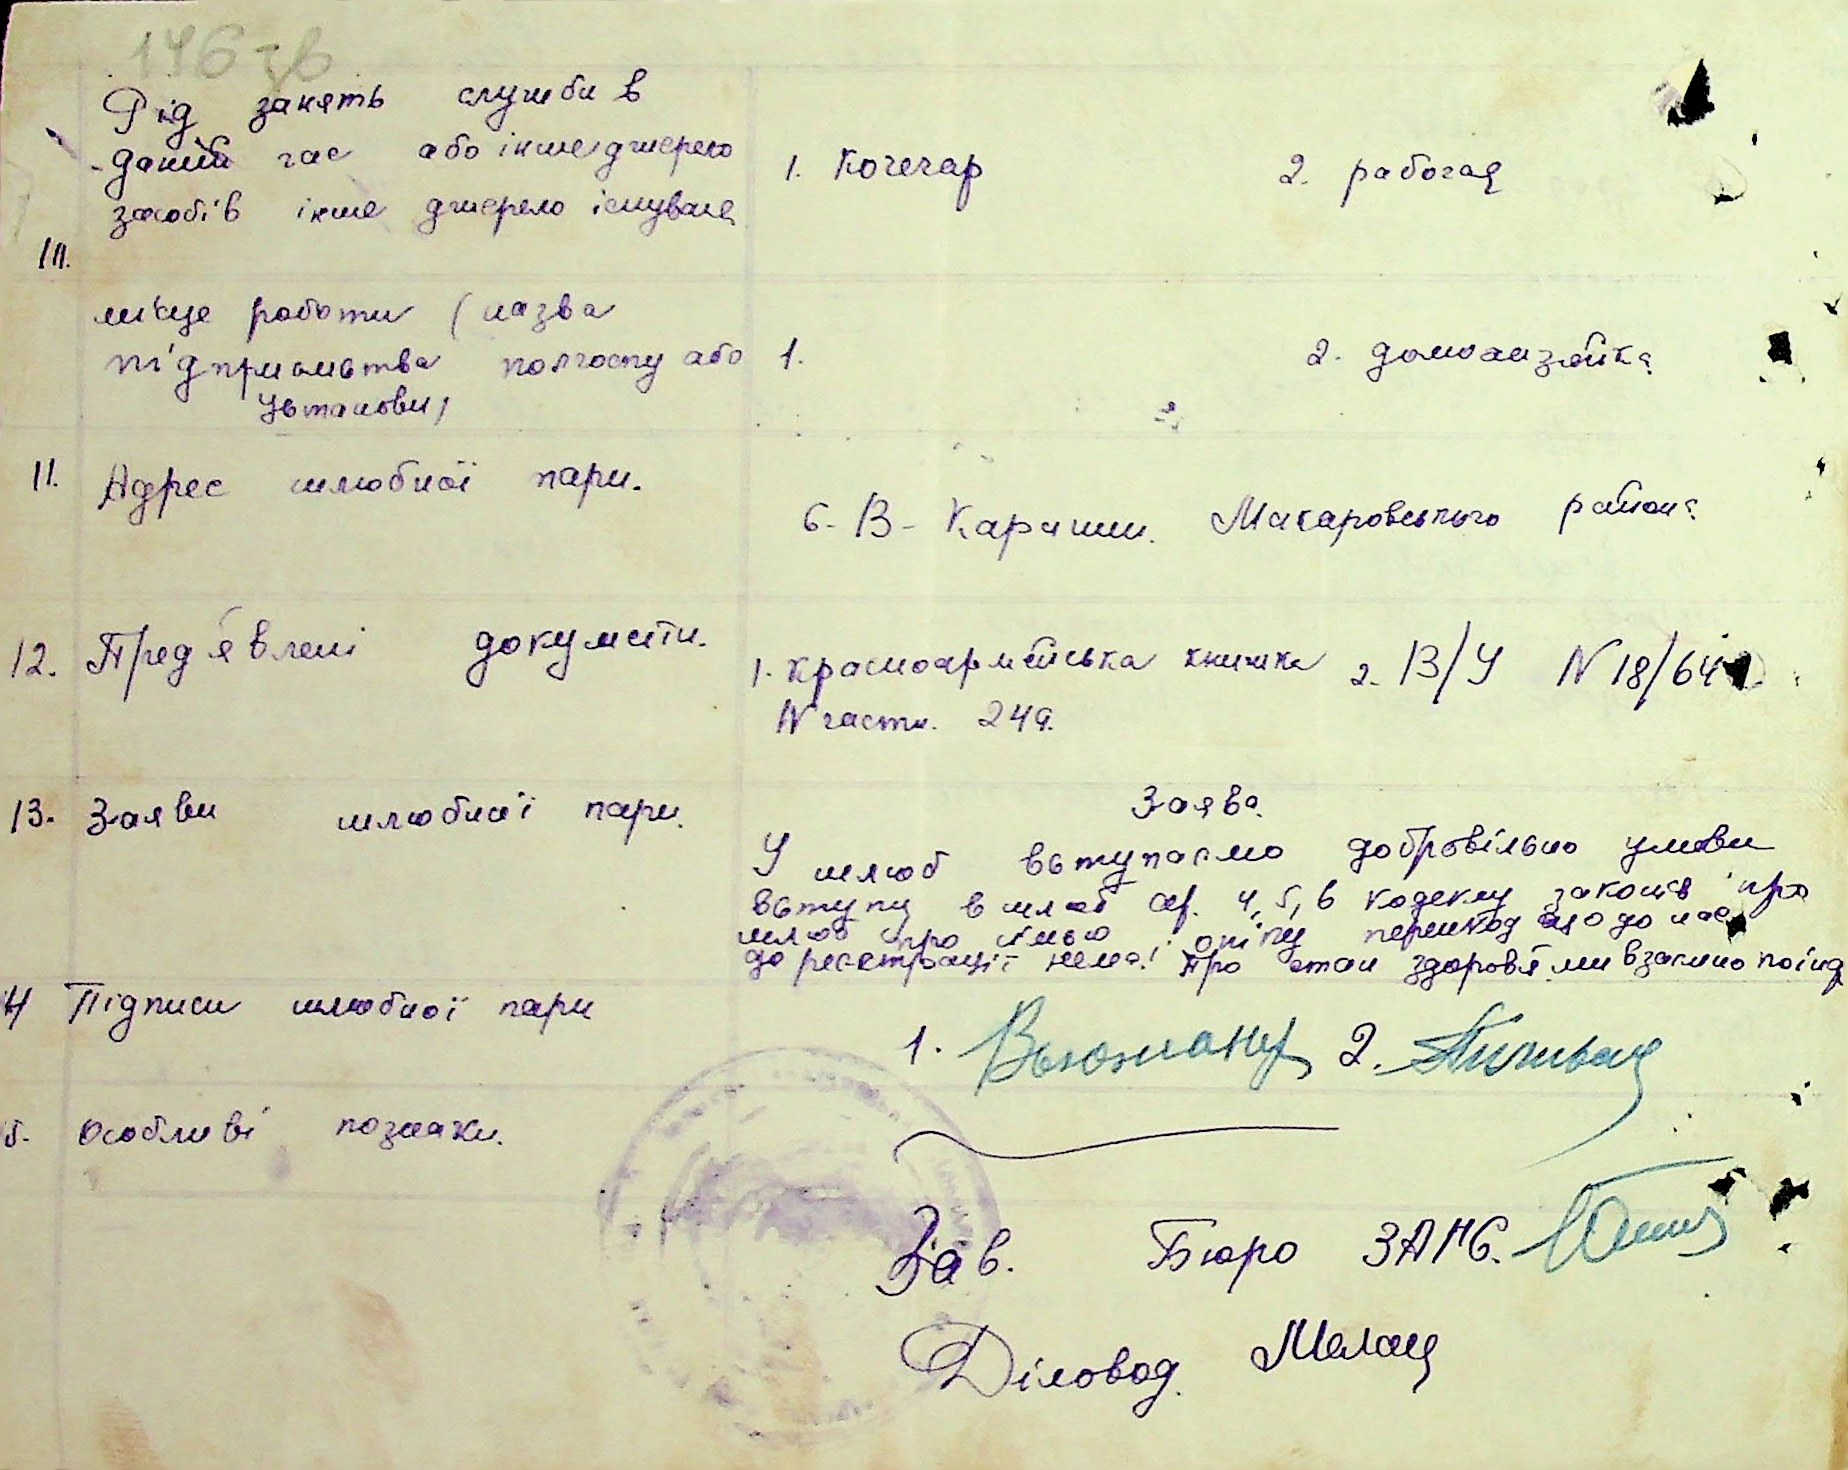 146 зв
Рід занять служби в
даний час або інше джерело
засобів інше джерело існуван
1. Кочегар
2. рабочая
10.
місце роботи (назва
підприємства колгоспу або
установи)
1.
2. домохазяйка
11. Адрес шлюбної пари.
с. В-Карашин. Макаровського района
12. Пред'явлені документи.
1. Красноармійська книжка
N части. 249.
2. В/У N 18/64
13. Заяви шлюбної пари.
Заява.
У шлюб вступаємо добровільно умови
вступу в шлюб ст. 4, 5, 6 кодексу законів про
шлюб про сімью опіку перешкод що до нас
до реєстрації немаі Про стан здоров'я ми взаємно поінф
14 Підписи шлюбної пари
1. Вьюжанир 2.
15. Особливі познаки.
Зав. Бюро ЗАГС.
Діловод.